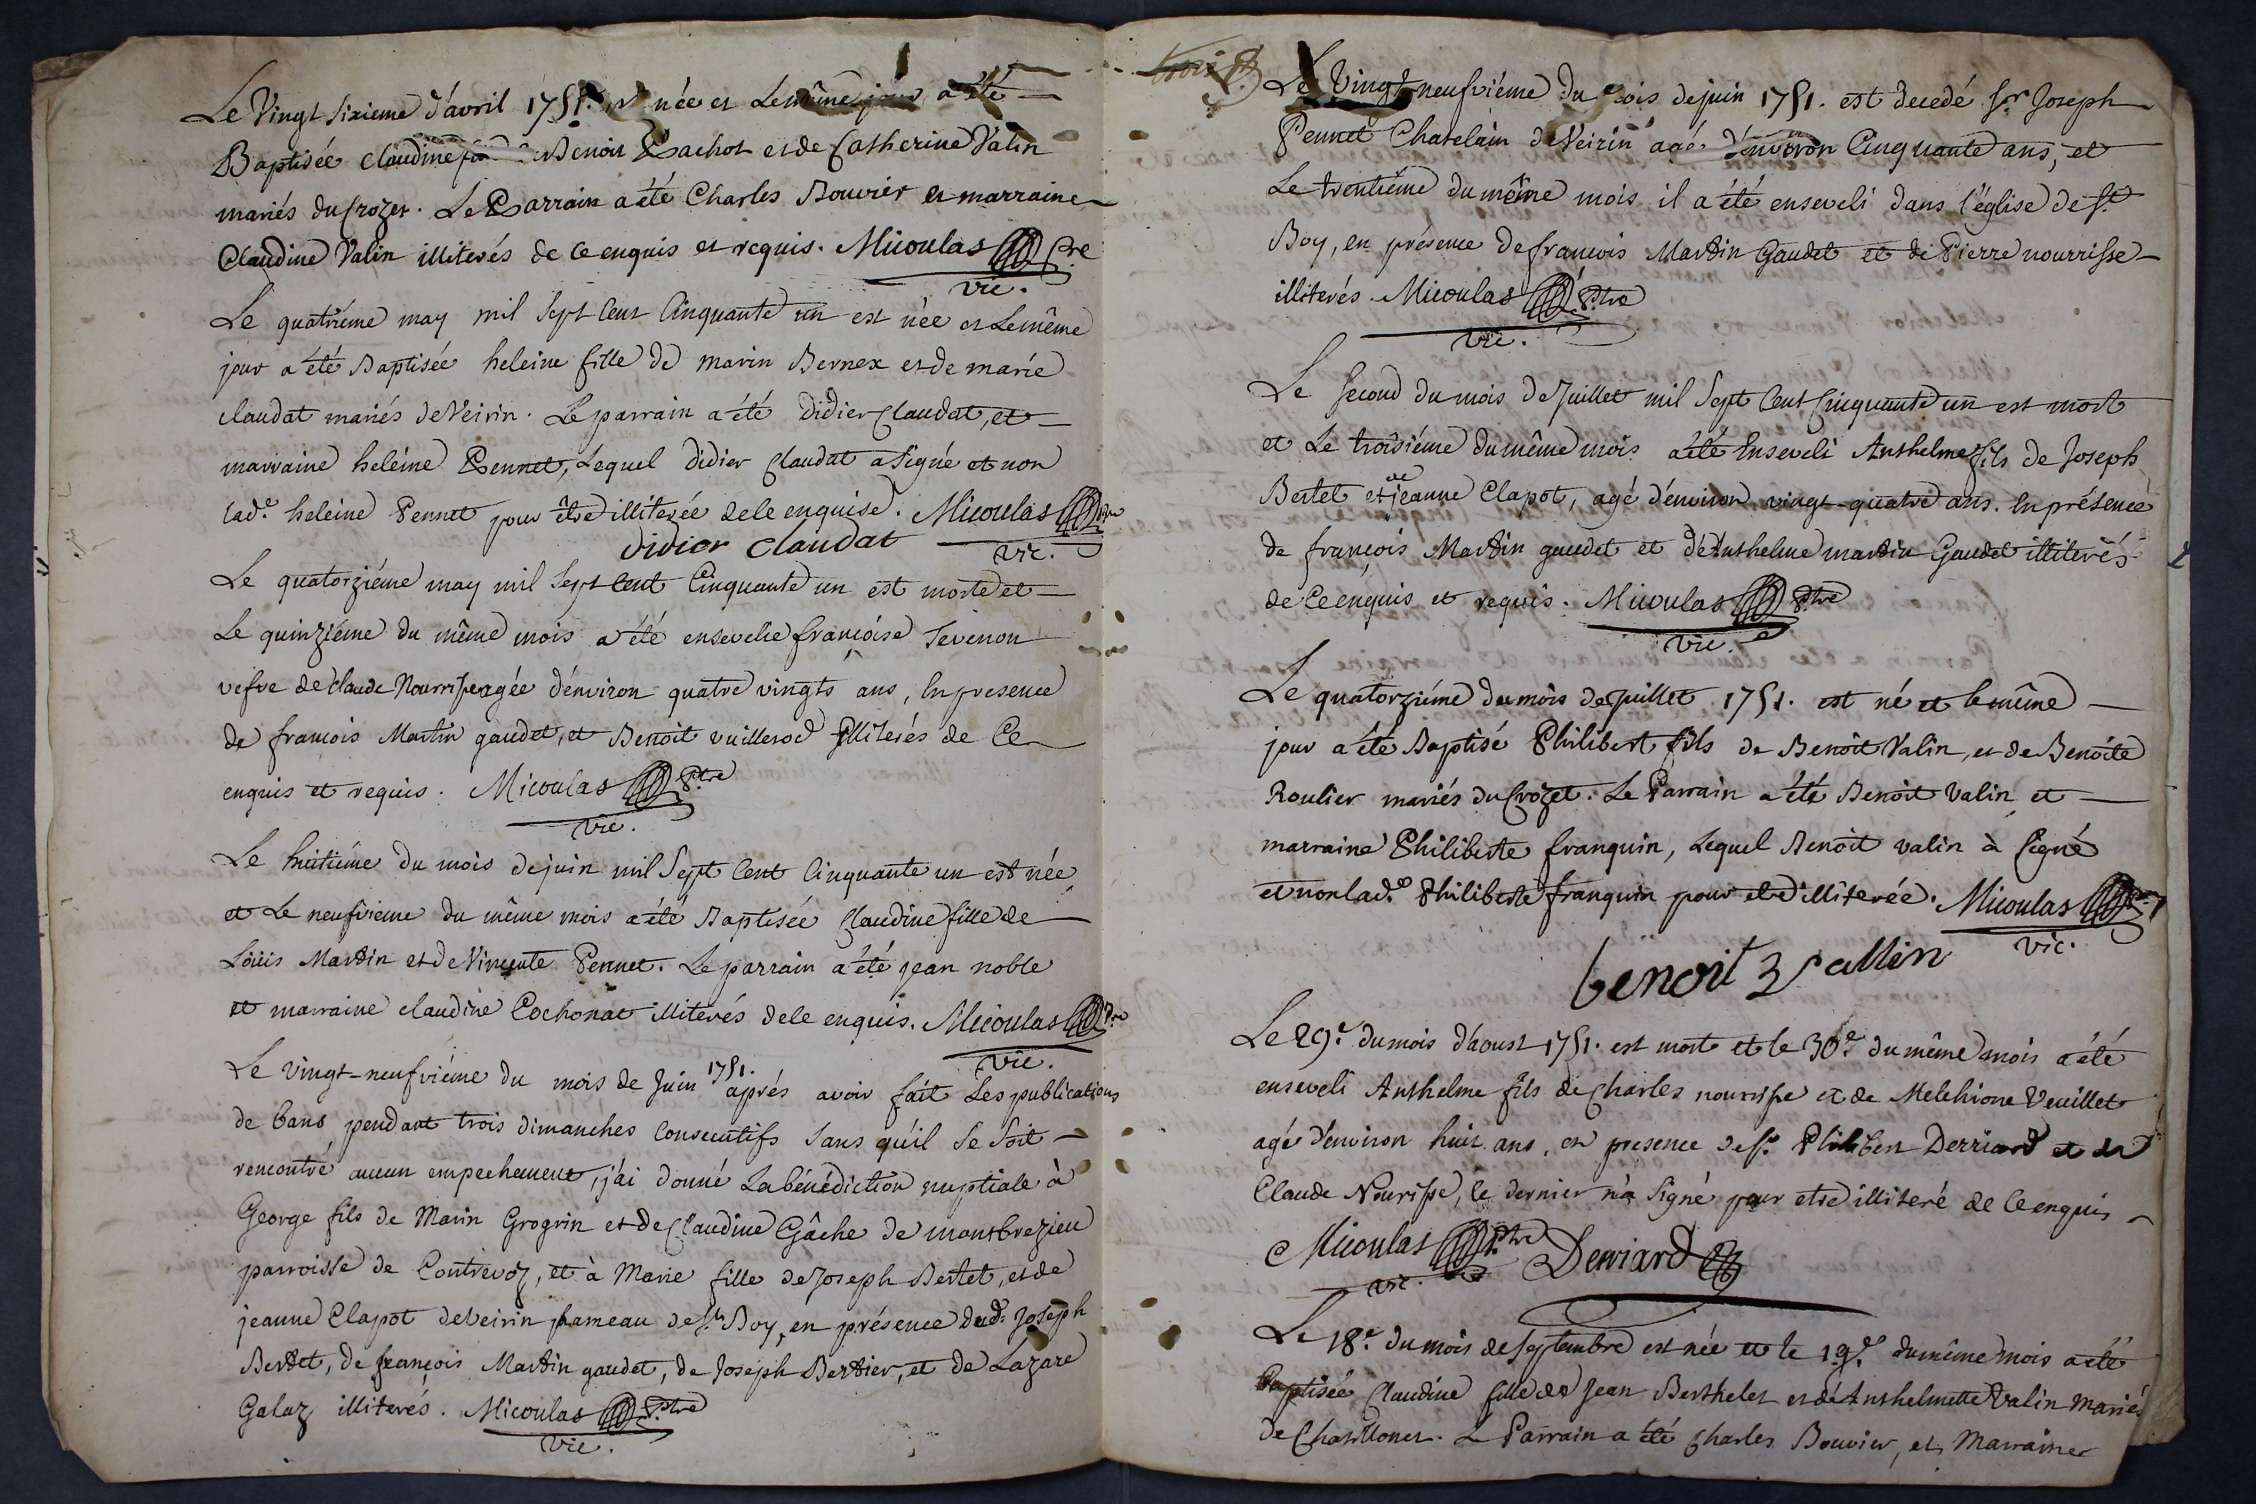 Le Vingt Sixieme d'avril 1751. est née et le même jour a été
Baptisée claudine fille de Benoit Pachot et de Catherine Valin
mariés du Crozet. Le Parrain a été Charles Bouvier et marraine
Claudine Valin illiterés de ce enquis et requis. Micoulas Ptre
vic.
Le quatriéme may mil Sept Cent Cinquante un est née et le même
jour a été Baptisée heleine fille de marin Bernex et de marie
claudat mariés de Veirin. Le parrain a été didier claudat, et
marraine heleine Pennet, Lequel didier claudat a signé et non
lad.e heleine Pennet pour être illiterée de ce enquise. Micoulas Ptre
didier claudat vic.
Le quatorziéme may mil Sept Cent Cinquante un est morte et
Le quinziéme du même mois a été ensevelie françoise Sevenon
vefve de claude Nourrisse agée d'environ quatre vingts ans, En presence
de francois Martin gaudet, et Benoit vuillerod Illiterés de Ce
enquis et requis. Micoulas Ptre
vic.
Le huitiéme du mois de juin mil Sept Cent Cinquante un est née
et Le neufvieme du même mois a été Baptisée Claudine fille de
Loüis Martin et de Vincente Pennet. Le parrain a été jean noble
et marraine claudine Cochonat illiterés de ce enquis. Micoulas Ptre
vic.
Le vingt-neufviéme du mois de Juin 1751. aprés avoir fait Les publications
de bans pendant trois dimanches Consecutifs Sans qu'il Se Soit
rencontré aucun empechement, j'ai donné La bénédiction nuptiale à
George fils de Marin Grogrin et de Claudine Gâche de montbrezieu
parroisse de Contrevoz, et à Marie fille de Joseph Bertet, et de
jeanne Clapot de Veirin hameau de St Boy, en présence dud. Joseph
Bertet, de françois Martin gaudet, de Joseph Bertier, et de Lazare
Galaz illiterés. Micoulas Ptre
vic.
Le Vingt neufviéme du mois de juin 1751. est decedé Sr Joseph
Pennet Chatelain de Veirin agé d'environ Cinquante ans, et
Le trentiéme du même mois il a été enseveli dans l'église de St
Boy, en présence de francois Martin Gaudet et de Pierre nourrisse
illiterés. Micoulas Ptre
vic.
Le Second du mois de Juillet mil Sept Cent Cinquante un est mort
et Le troisiéme du même mois a été Enseveli Anthelme fils de Joseph
Bertet et de jeanne Clapot, agé d'environ vingt-quatre ans. En présence
de françois Martin gaudet et d'Anthelme martin Gaudet illiterés
de Ce enquis et requis. Micoulas Ptre
vic.
Le quatorziéme du mois de Juillet 1751. est né et le même
jour a été Baptisé Philibert fils de Benoit Valin, et de Benoite
Roulier mariés du Crozet. Le Parrain a été Benoit Valin et
marraine Philiberte franquin, Lequel Benoit valin à Signé
et non lad.e Philiberte franquin pour etre illiterée. Micoulas Ptre
vic.
benoit vallin
Le 29.e du mois d'aoust 1751. est mort et le 30.e du même mois a été
enseveli Anthelme fils de Charles nourrisse et de Melchione Veuillet
agé d'environ huit ans, en presence de Sr. Philibert Derriard et de
Claude Nourisse, le dernier n'a signé pour etre illiteré de Ce enquis
Micoulas Ptre Derriard
vic.
Le 18.e du mois de septembre est née et le 19.e du même mois a été
Baptisée Claudine fille de Jean Berthelet et d'Anthelmette Valin mariés
de Chatillonet. Le Parrain a été Charles Bouvier, et Marraine